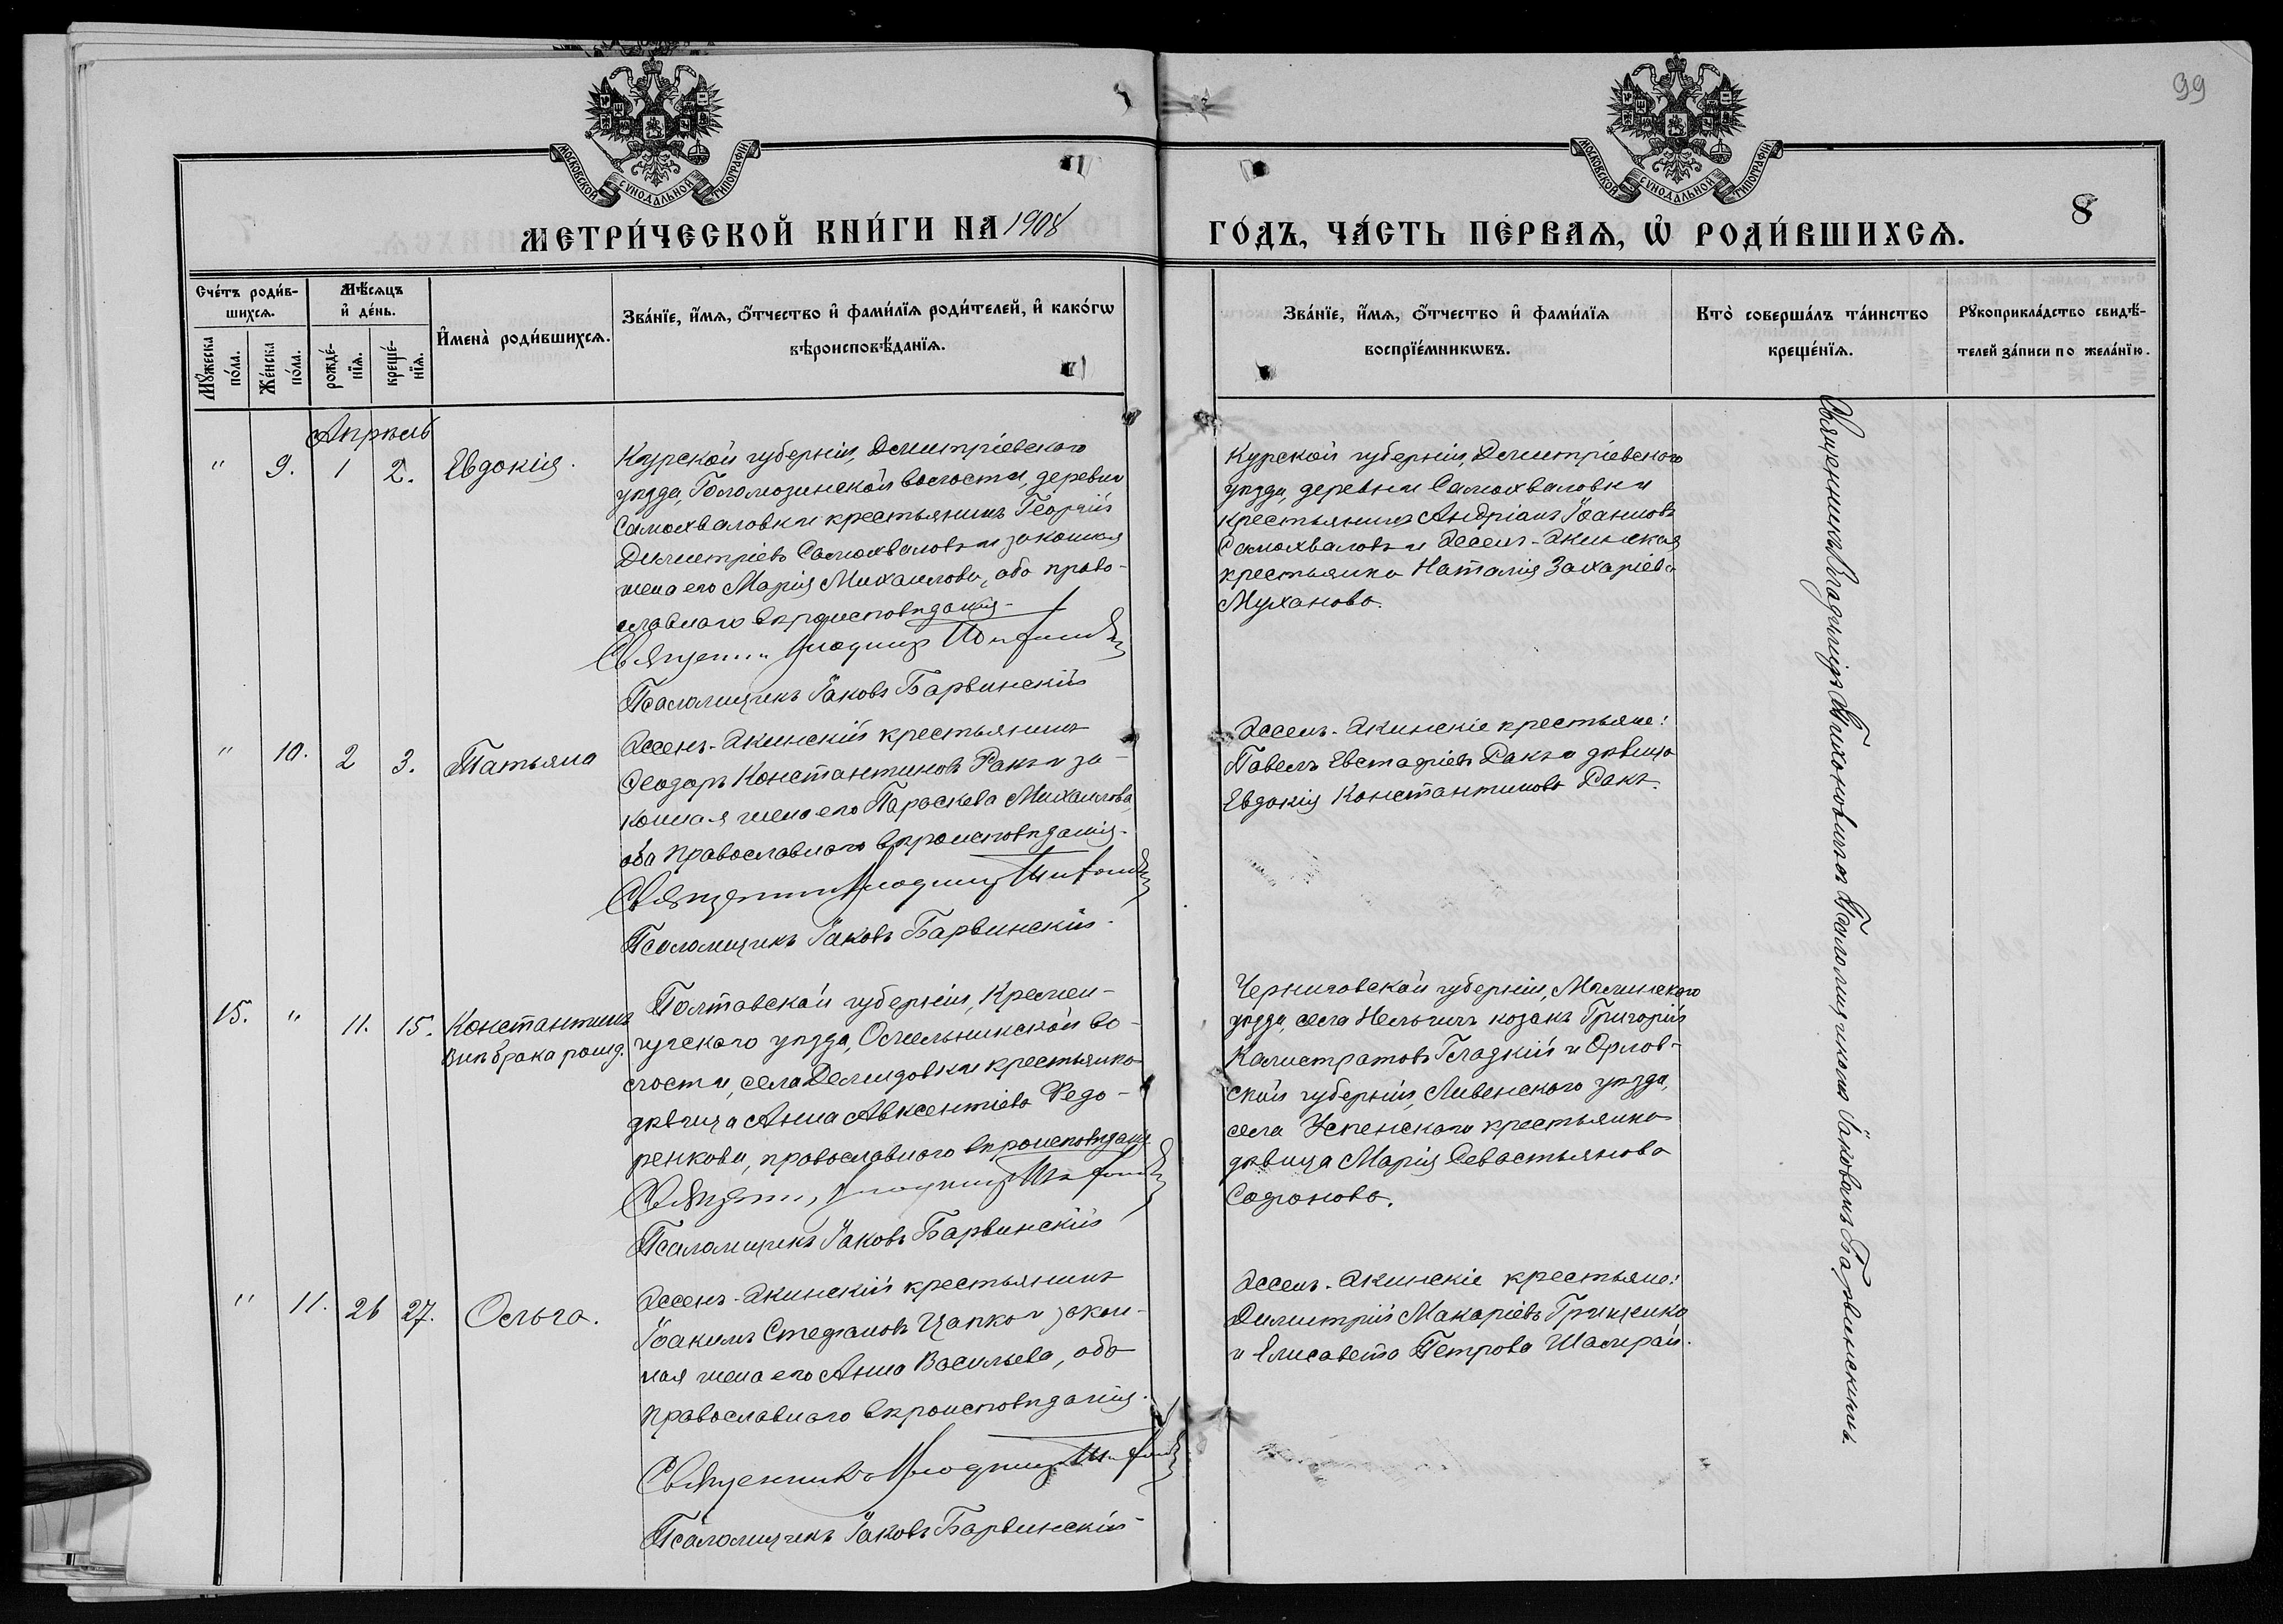 99
8
МОСКОВСКОЙ СѴНОДАЛЬНОЙ ТИПОГРАФІИ
МОСКОВСКОЙ СѴНОДАЛЬНОЙ ТИПОГРАФІИ
МЕТРИ́ЧЕСКОЙ КНИ́ГИ НА 1908 ГО́ДЪ, ЧА́СТЬ ПЕ́РВАѦ, Ѡ҆ РОДИ́ВШИХСѦ.
Сче́тъ роди́в-
шихсѧ.
Мꙋ́жеска по́ла.
Же́нска по́ла.
Мѣ́сѧцъ
и҆ де́нь.
рожде́-
нїѧ.
креще́-
нїѧ.
И҆мена̀ роди́вшихсѧ.
Зва́нїе, и҆́мѧ, ѻ҆́тчество и҆ фами́лїѧ роди́телей, и҆ како́гѡ
вѣроисповѣ́данїѧ.
Зва́нїе, и҆́мѧ, ѻ҆́тчество и҆ фами́лїѧ
воспрїе́мникѡвъ.
Кто̀ соверша́лъ та́инство
креще́нїѧ.
Рꙋкоприкла́дство свидѣ́-
телей за́писи по жела́нїю.
Апрѣль
" 9. 1 2. Евдокія.
Курской губерніи, Дмитріевскаго
уѣзда, Голомозинской волости, деревни
Самохваловки крестьянинъ Георгій
Димитріевъ Самохваловъ и законная
жена его Марія Михаилова, оба право-
славнаго вѣроисповѣданія.
Священникъ Владимір Тихонович
Псаломщикъ Іаковъ Барвинскій
Курской губерніи, Дмитріевскаго
уѣзда, деревни Самохваловки
крестьянинъ Андріанъ Іоанновъ
Самохваловъ и Ассенъ-Акинская
крестьянка Наталія Захаріева
Муханова.
" 10. 2 3. Татьяна
Ассенъ-Акинскій крестьянинъ
Ѳеодоръ Константиновъ Ракъ и за-
конная жена его Параскева Михаилова,
оба православнаго вѣроисповѣданія.
Священникъ Владимір Тихонович
Псаломщикъ Іаковъ Барвинскій
Ассенъ-Акинскіе крестьяне:
Павелъ Евстафіевъ Ракъ и дѣвица
Евдокія Константинова Ракъ.
15. " 11. 15. Константинъ
Внѣ брака рожд.
Полтавской губерніи, Кремен-
чугскаго уѣзда, Омельникской во-
лости, села Демидовки крестьянка
дѣвица Анна Авксентіева Федо-
ренкова, православнаго вѣроисповѣданія
Священникъ Владимір Тихонович
Псаломщикъ Іаковъ Барвинскій
Черниговской губерніи, Мглинскаго
уѣзда, села Нельгичъ козакъ Григорій
Калистратовъ Гладкій и Орлов-
ской губерніи, Ливенскаго уѣзда,
села Успенскаго крестьянка
дѣвица Марія Севастьянова
Сафонова.
" 11. 26 27. Ольга.
Ассенъ-Акинскій крестьянинъ
Іоакимъ Стефановъ Цапко и закон-
ная жена его Анна Васильева, оба
православнаго вѣроисповѣданія.
Священникъ Владимір Тихонович
Псаломщикъ Іаковъ Барвинскій
Ассенъ-Акинскіе крестьяне:
Димитрій Макаріевъ Гриценко
и Елисавета Петрова Шамрай.
Священникъ Владиміръ Тихоновичъ съ Псаломщикомъ Іаковомъ Барвинскимъ.